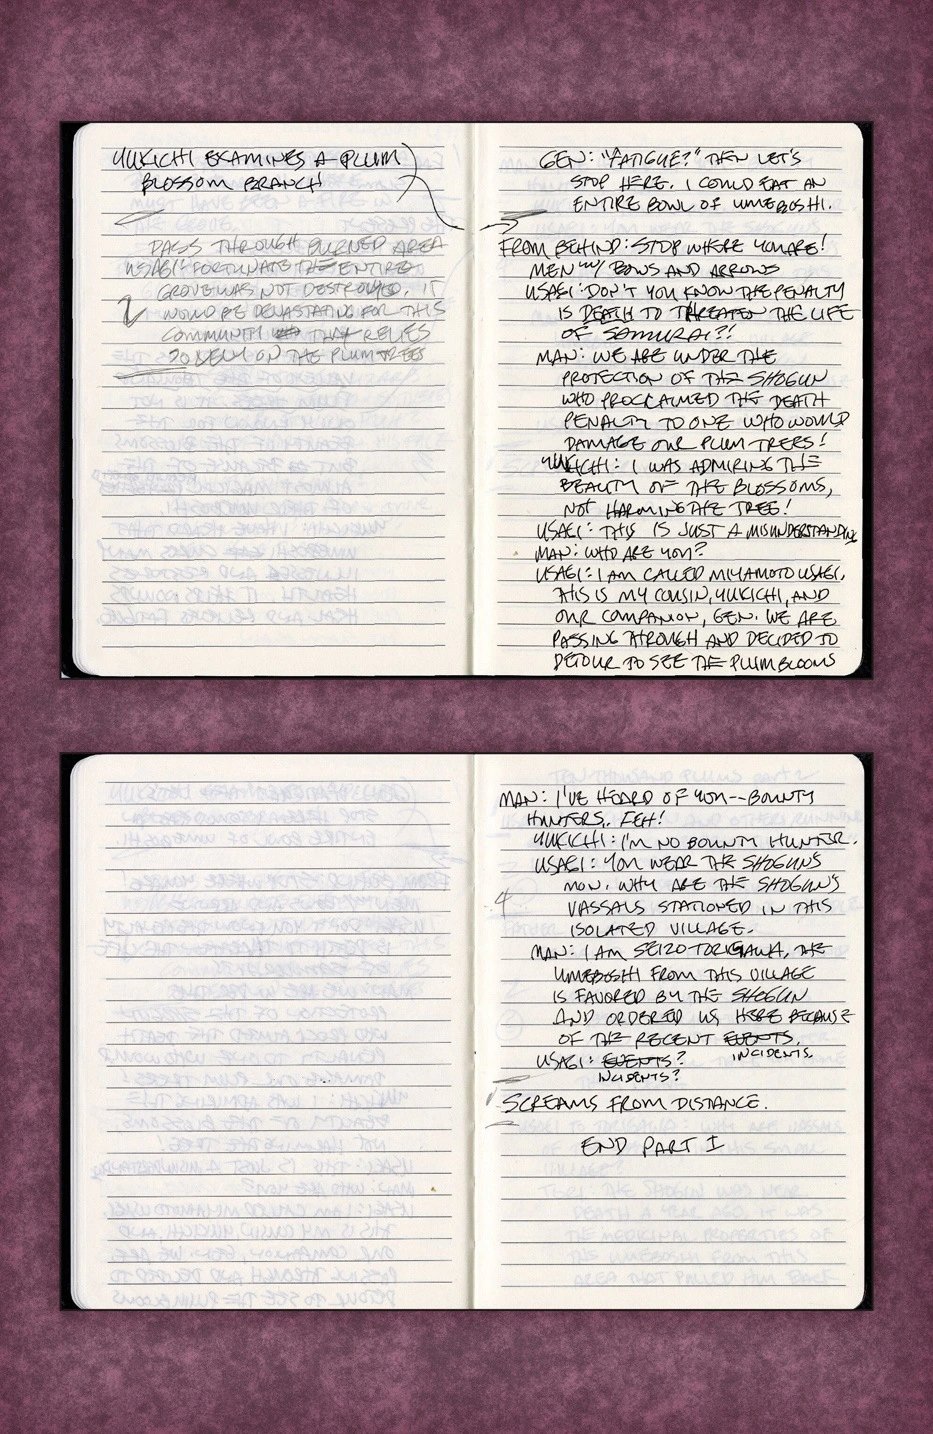 YUKICHI EXAMINES A PLUM
BLOSSOM BRANCH
PASS THROUGH BURNED AREA
USAGI: FORTUNATE THE ENTIRE
GROVE WAS NOT DESTROYED. IT
2 WOULD BE DEVASTATING FOR THIS
COMMUNITY THAT RELIES
SO MUCH ON THE PLUM TREES
GEN: "FATIGUE?" THEN LET'S
STOP HERE. I COULD EAT AN
ENTIRE BOWL OF UMEBOSHI.
FROM BEHIND: STOP WHERE YOU ARE!
MEN W/ BOWS AND ARROWS
USAGI: DON'T YOU KNOW THE PENALTY
IS DEATH TO THREATEN THE LIFE
OF SAMURAI?!
MAN: WE ARE UNDER THE
PROTECTION OF THE SHOGUN
WHO PROCLAIMED THE DEATH
PENALTY TO ONE WHO WOULD
DAMAGE OUR PLUM TREES!
YUKICHI: I WAS ADMIRING THE
BEAUTY OF THE BLOSSOMS,
NOT HARMING THE TREE!
USAGI: THIS IS JUST A MISUNDERSTANDING
MAN: WHO ARE YOU?
USAGI: I AM CALLED MIYAMOTO USAGI.
THIS IS MY COUSIN, YUKICHI, AND
OUR COMPANION, GEN. WE ARE
PASSING THROUGH AND DECIDED TO
DETOUR TO SEE THE PLUM BLOOMS
MAN: I'VE HEARD OF YOU--BOUNTY
HUNTERS. FEH!
YUKICHI: I'M NO BOUNTY HUNTER.
USAGI: YOU WEAR THE SHOGUN'S
MON. WHY ARE THE SHOGUN'S
4 VASSALS STATIONED IN THIS
ISOLATED VILLAGE.
MAN: I AM SEIZO TORIGAWA, THE
UMEBOSHI FROM THIS VILLAGE
IS FAVORED BY THE SHOGUN
AND ORDERED US HERE BECAUSE
OF THE RECENT EVENTS.
INCIDENTS
USAGI: EVENTS?
INCIDENTS?
SCREAMS FROM DISTANCE.
END PART I